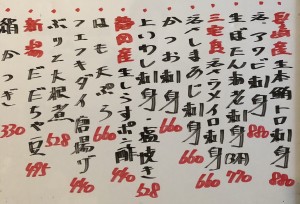 長崎産 生本鮪トロ刺身 880
活〆アワビ刺身 880
生ぼたん海老刺身 3本 770
三宅島 活〆メイロ刺身 660
活〆しまあじ刺身 660
かつお刺身 660
上いわし刺身・塩焼き 528
静岡産 生しらすポン酢 440
はも天ぷら 660
フエフキダイ唐揚げ 440
ぶりと大根煮 528
新潟 だだちゃ豆 495
絹かつぎ 330